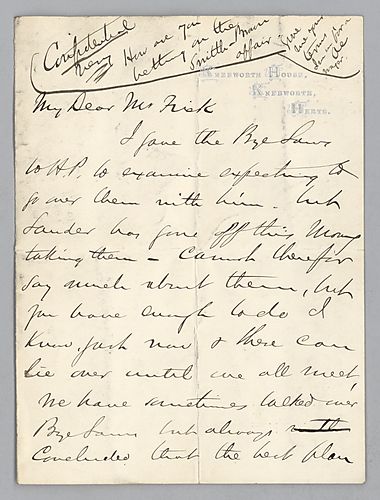 Confidential
very How are you
betting on the
Smith-Brown
affair
Give me your
down
Knebworth House,
Knebworth,
Herts.
My Dear Mr Frick
I gave the Bye Laws
to H.P. to examine expecting to
go over them with him. but
Lauder has gone off this Morng
taking them – Cannot therefor
say much about them, but
you have enough to do I
Know, just now & these can
lie over until we all meet,
We have sometimes talked over
Bye Laws but always
Concluded that the best plan